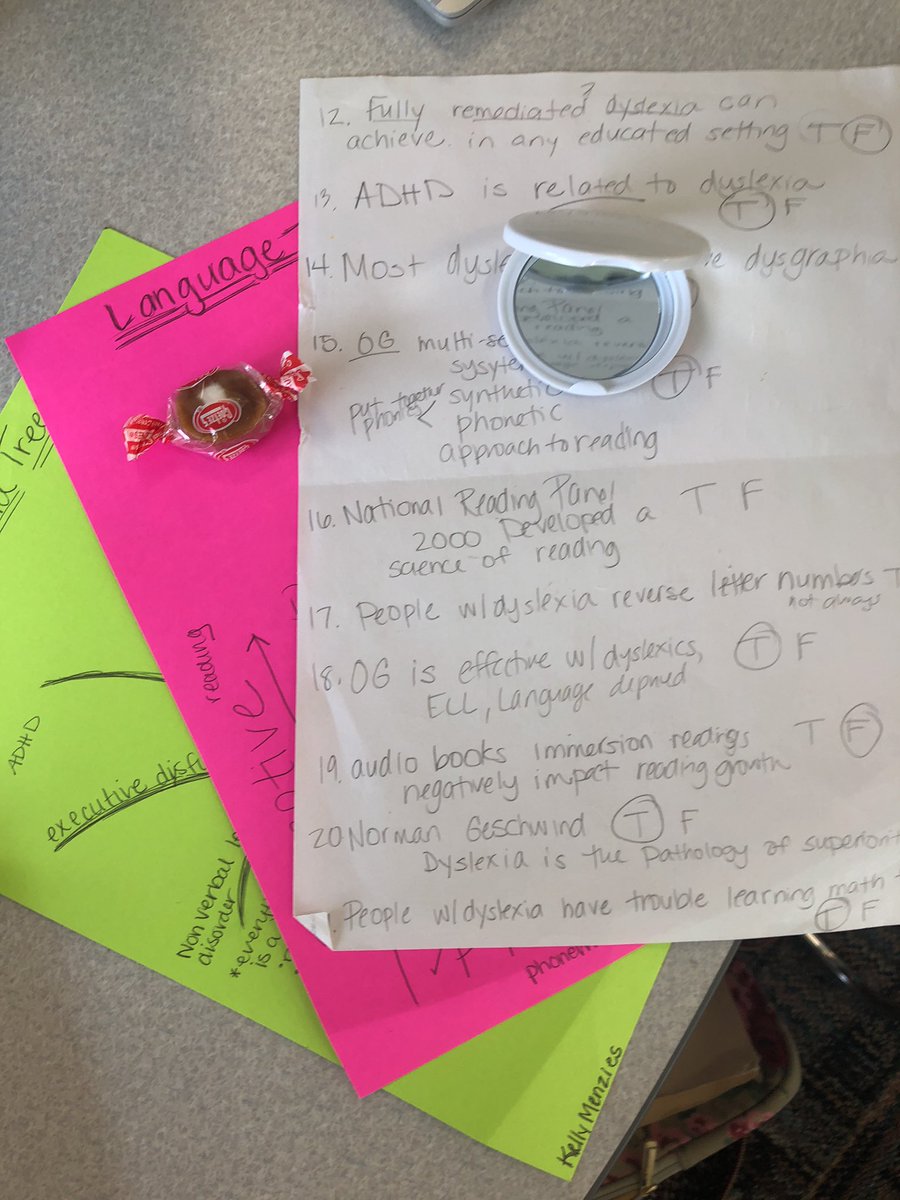 12. Fully remediated ? dyslexia can
achieve in any educated setting T F
13. ADHD is related to dyslexia
T F
14. Most dysle e dysgraphia
15. OG multi-se
sysyte T F
put together phonics < synthetic
phonetic
approach to reading
16. National Reading Panel T F
2000 Developed a
science of reading
17. People w/dyslexia reverse letter numbers T
not always
18. OG is effective w/dyslexics, T F
ECL, Language deprived
19. audio books immersion readings T F
negatively impact reading growth
20 Norman Geschwind T F
Dyslexia is the Pathology of superiorit
People w/dyslexia have trouble learning math
T F
Language
reading
otive
phonem
Tree
ADHD
executive disfu
Non verbal l
disorder
*every
is a
Kelly Menzies